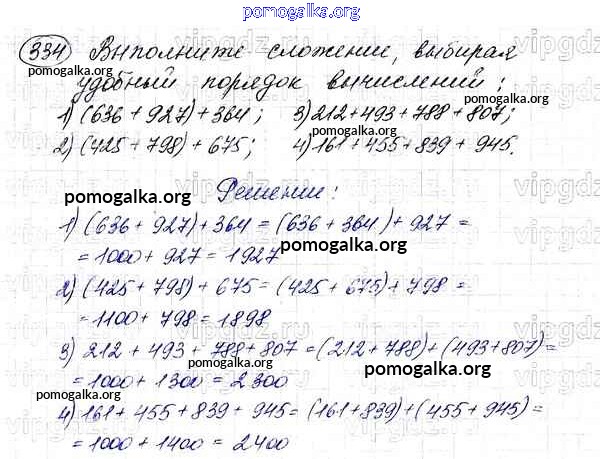 pomogalka.org
334 Выполните сложение, выбирая
pomogalka.org
удобный порядок вычислений:
pomogalka.org
1) (636 + 927) + 364; 3) 212 + 493 + 788 + 807;
pomogalka.org pomogalka.org
2) (425 + 798) + 675; 4) 161 + 455 + 839 + 945.
pomogalka.org
Решение:
pomogalka.org
1) (636 + 927) + 364 = (636 + 364) + 927 =
= 1000 + 927 = 1927
pomogalka.org
2) (425 + 798) + 675 = (425 + 675) + 798 =
= 1100 + 798 = 1898
pomogalka.org
3) 212 + 493 + 788 + 807 = (212 + 788) + (493 + 807) =
pomogalka.org
= 1000 + 1300 = 2300
pomogalka.org
4) 161 + 455 + 839 + 945 = (161 + 839) + (455 + 945) =
= 1000 + 1400 = 2400
pomogalka.org